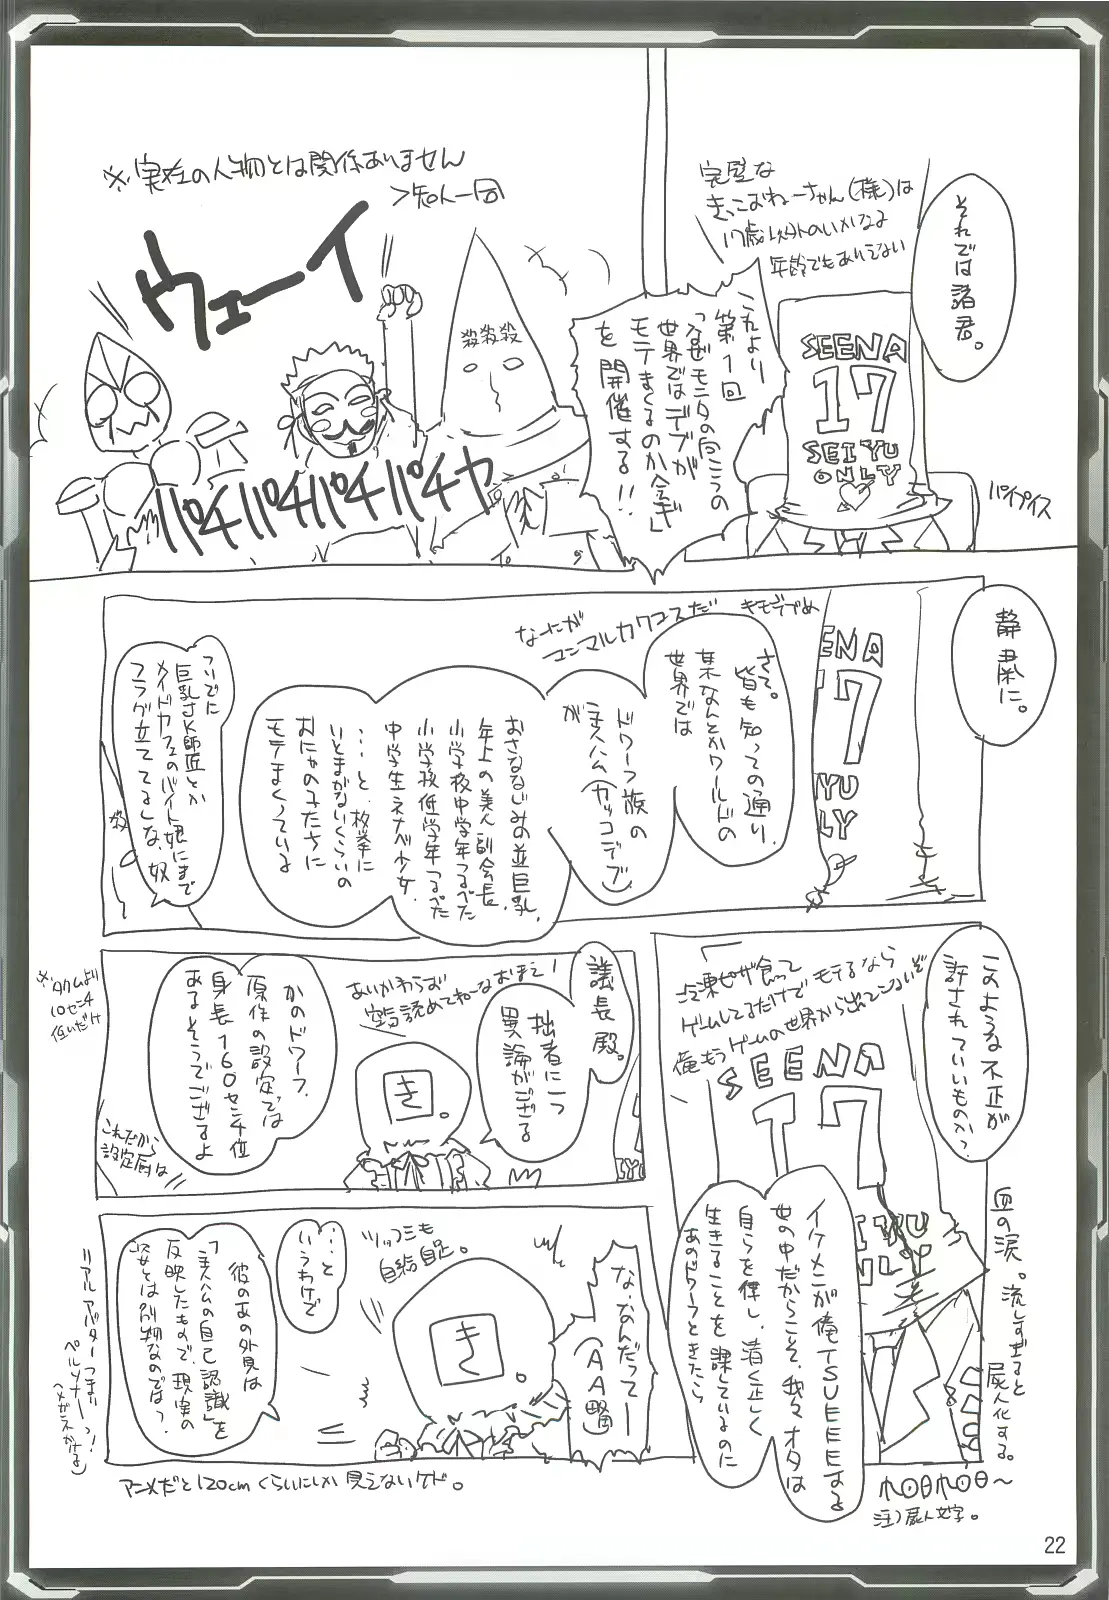 それでは諸君。
完璧な
きっこおねーちゃん(様)は
17歳以外のいかなる
年齢でもありえない
SEENA
17
SEIYU
ONLY
パイプイス
これより
第1回
「なぜモニタの向こうの
世界ではデブが
モテまくるのか会議」
を開催する!!
※実在の人物とは関係ありません
>知人一同
殺殺殺
ウェーイ
パチパチパチパチャ
静粛に。
ENA
17
IYU
LY
キモデブめ
さて。
皆も知っての通り、
某なんとかワールドの
世界では
なーたが
マンマルカワユスだ
ドワーフ族の
主人公(カッコデブ)
が
おさななじみの並巨乳、
年上の美人副会長、
小学校中学年つるぺた
小学校低学年つるぺた
中学生ネナベ少女、
…と、枚挙に
いとまがないくらいの
おにゃのこたちに
モテまくっている
ついでに
巨乳JK師匠とか
メイドカフェのバイト娘にまで
フラグ立ててるしな、奴
殺
このような不正が
許されていいものか?
「冷凍ピザ食って
ゲームしてるだけでモテるなら
俺もうゲームの世界から出てこないぞ
SEENA
17
IYU
NL
イケメンが俺TSUEEEする
世の中だからこそ、我々オタは
自らを律し、清く正しく
生きることを課しているのに
あのドワーフときたら
血の涙。流しすぎると
屍人化する。
注)屍人文字。
議長殿。
拙者に一つ
異論がござる
あいかわらず
空気読めてねーなおまえ!
き。
IYU
かのドワーフ、
原作の設定っては
身長160センチ位
あるそうでござるよ
※タクムより
10センチ
低いだけ
これだから
設定厨は
な、なんだってー
(AA略)
ツッコミも
自給自足。
き。
…と
いうわけで
彼のあの外見は
「主人公の自己認識」を
反映したもので、現実の
彼女とは別物なのでは?
リアルアバターつまり
ペルソナーっ!
(メガネかける)
アニメだと120cmくらいにしか見えないケド。
22